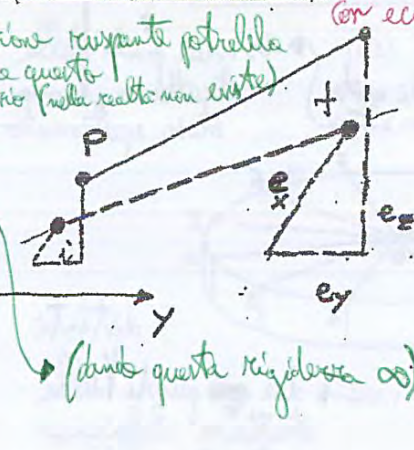 Con ec
zione raspante potrebbe
a questo
rio (nella realtà non esiste).
P
t
i
e
x
e z
e y
y
(dando questa rigidezza ∞)